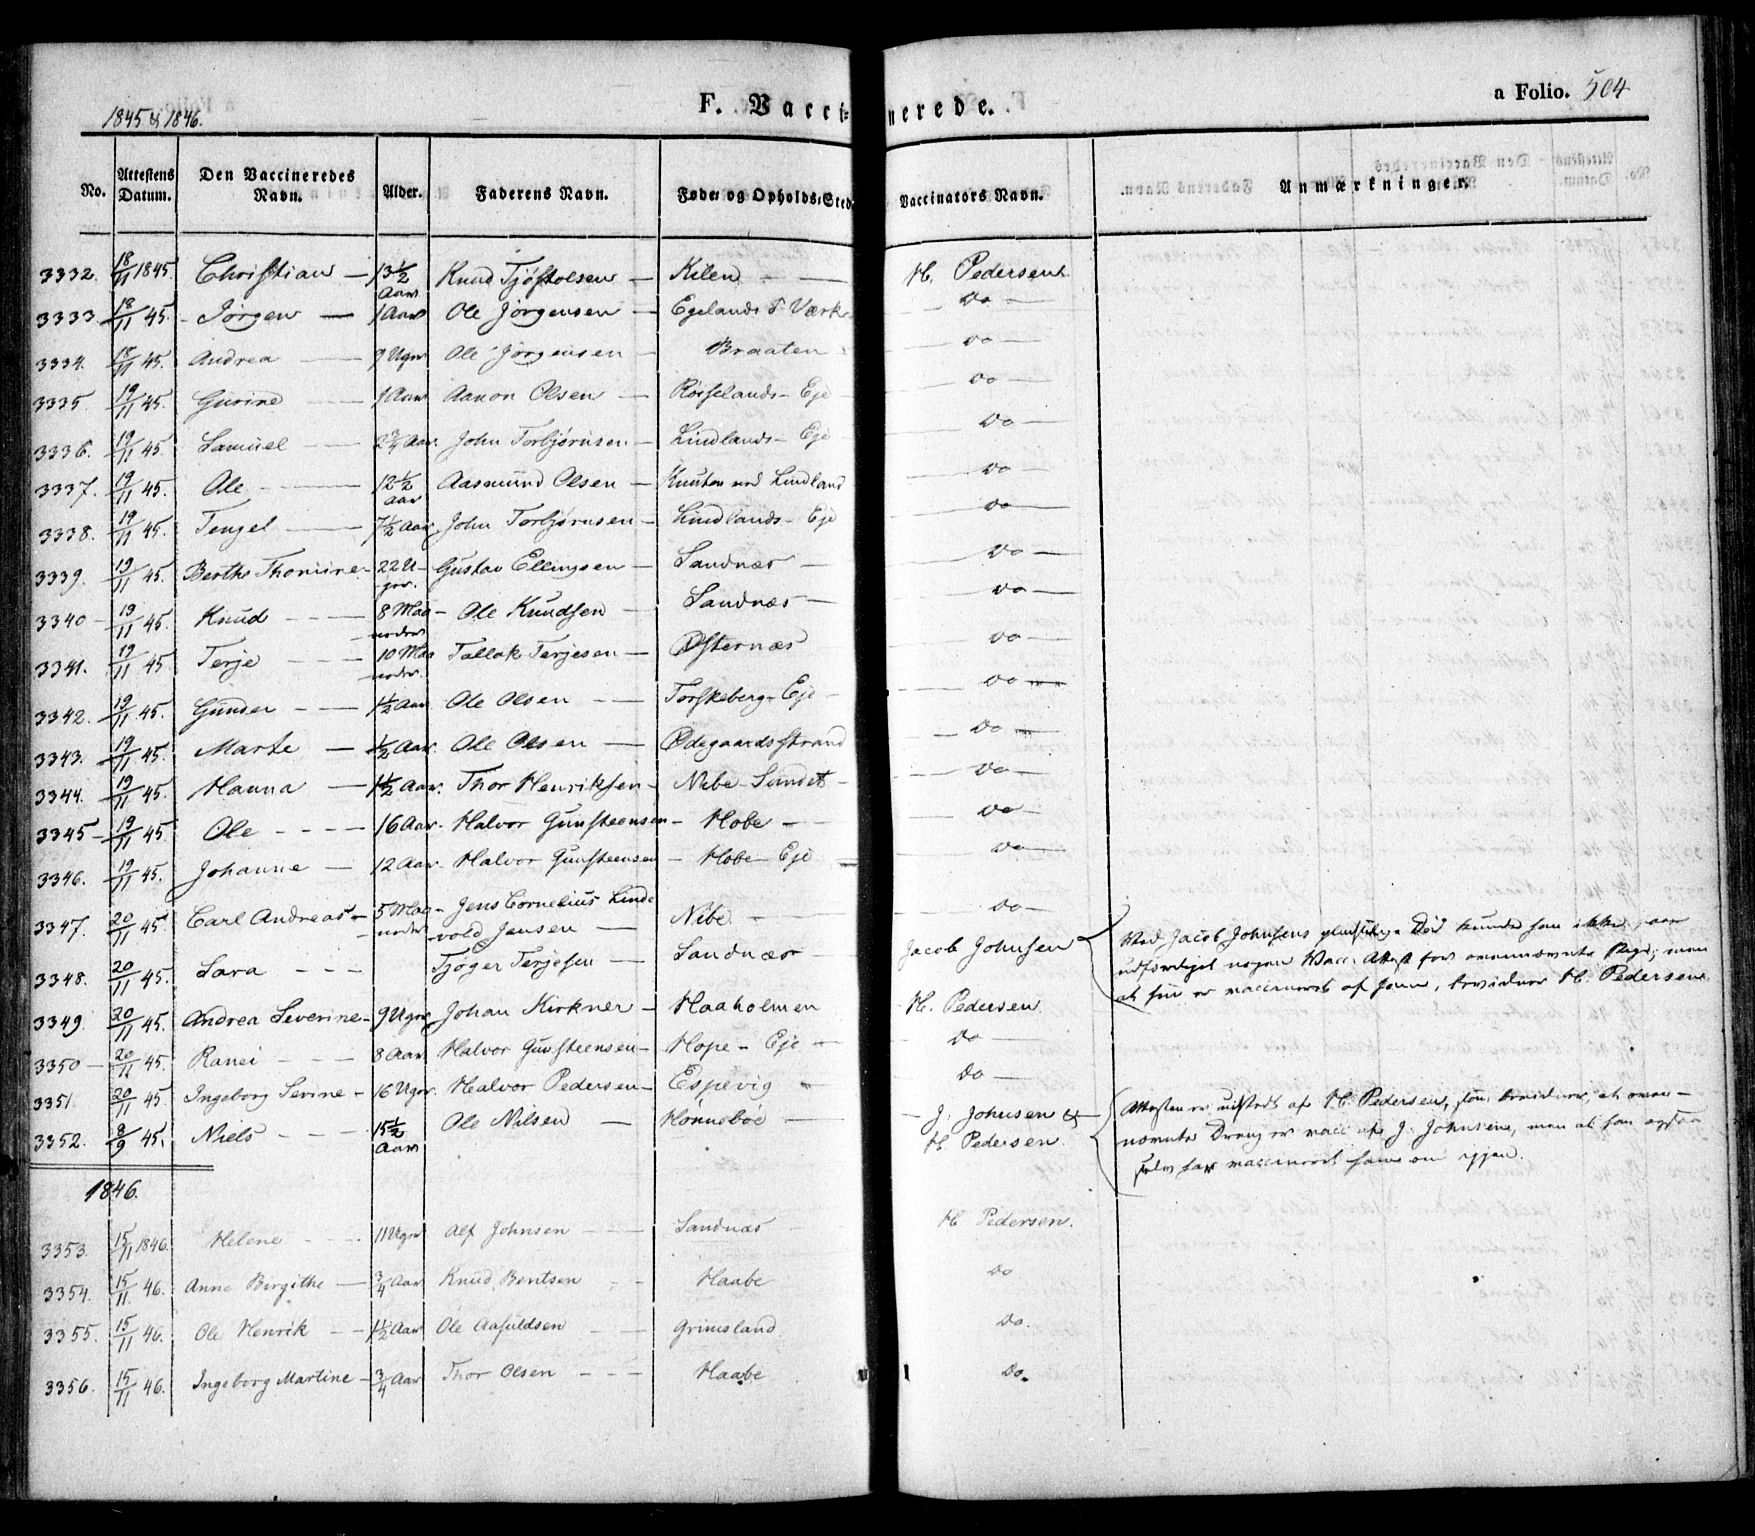 1845 & 1846.
F. Vaccinerede.
a Folio. 504
No. Attestens Datum. Den Vaccineredes Navn. Alder. Faderens Navn. Føde- og Opholds-Sted Vaccinators Navn. Anmærkninger.
3332. 18/11 1845. Christian — 13½ Aar Knud Tjøstolsen — Kilen — H. Pedersen
3333. 18/11 45. Jørgen — 1 Aar Ole Jørgensen — Egelands Værk Do —
3334. 18/11 45. Andrea — 9 Uger Ole Jørgensen — Braaten Do —
3335. 19/11 45. Gurine — 1 Aar Aanon Olsen — Røsselands- Eje Do —
3336. 19/11 45. Samuel — 2¾ Aar. John Torbjørnsen — Lindlands- Eje Do —
3337. 19/11 45. Ole — 12½ Aar Aasmund Olsen — Knuten ved Lindland Do
3338. 19/11 45. Tengel — 7½ Aar John Torbjørnsen — Lindlands- Eje Do —
3339. 19/11 45. Berthe Thomine — 22 Uger. Gustav Ellingsen — Sandnæs — Do —
3340 — 19/11 45. Knud — 8 Maaneder Ole Knudsen — Sandnæs — Do —
3341. 19/11 45. Terje — 10 Maaneder. Tallak Terjesen — Østernæs Do —
3342. 19/11 45. Gunder — 1½ Aar Ole Olsen — Torskeberg- Eje — Do —
3343. 19/11 45. Marte — ½ Aar. Ole Olsen — Ødegaardsstrand Do —
3344. 19/11 45. Hanna — 1½ Aar. Thor Henriksen — Nibe- Sundet — Do —
3345 — 19/11 45. Ole — 16 Aar. Halvor Gunsteensen — Hobe — Do —
3346. 19/11 45. Johanne — 12 Aar. Halvor Gunsteensen — Hobe- Eje — Do —
3347. 20/11 45. Carl Andreas — 5 Maaneder Jens Cornelius Lindevold Jensen — Nibe — Do —
3348. 20/11 45. Sara — Tjøger Terjesen — Sandnæs — Jacob Johnsen Ved Jacob Johnsens pludselige Død kunde han ikke
udfærdiget nogen Vacc: Attest for ovennævnte Pige; men
at hun er vaccineret af ham, bevidner H. Pedersen.
3349. 20/11 45. Andrea Severine — 9 Uger Johan Kirkner — Haaholmen H. Pedersen
3350 — 20/11 45. Ranei — 8 Aar. Halvor Gunsteensen — Hope- Eje — Do —
3351 20/11 45. Ingeborg Serine — 16 Uger. Halvor Pedersen — Espevig — Do —
3352. 8/9 45. Niels — 15½ Aar Ole Nilsen — Hønneboe — J. Johnsen & H. Pedersen. Attesten er udstedt af H. Pedersen, som bevidner, at oven-
nævnte Dreng er vacc: af J. Johnsen, men at han ogsaa
selv har vaccineret ham om igjen.
1846.
3353. 15/11 1846. Helene — 11 Uger Alf Johnsen — Sandnæs — H Pedersen.
3354. 15/11. 46. Anne Birgithe — ¾ Aar Knud Bentsen — Haabe Do
3355. 15/11 46. Ole Henrik — 1½ Aar Ole Aasuldsen — Grimsland Do.
3356. 15/11 46. Ingeborg Martine — ¾ Aar Thor Olsen — Haabe Do.